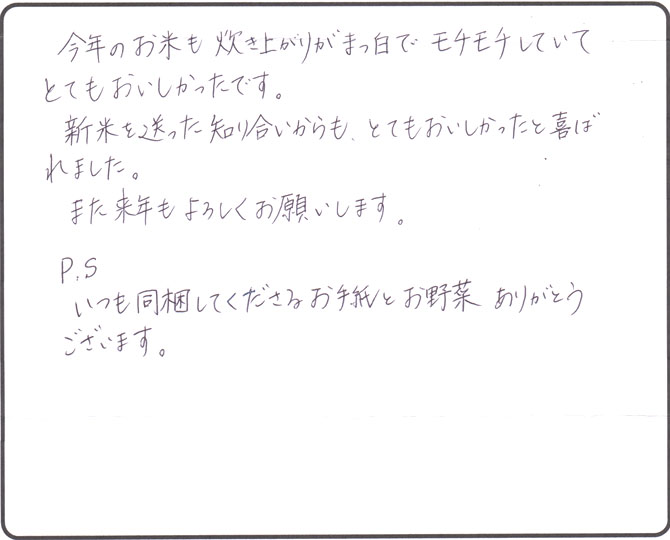 今年のお米も 炊き上がりがまっ白で モチモチしていて
とてもおいしかったです。
新米を送った知り合いからも、とてもおいしかったと喜ば
れました。
また来年もよろしくお願いします。
P.S
いつも同梱してくださるお手紙とお野菜 ありがとう
ございます。